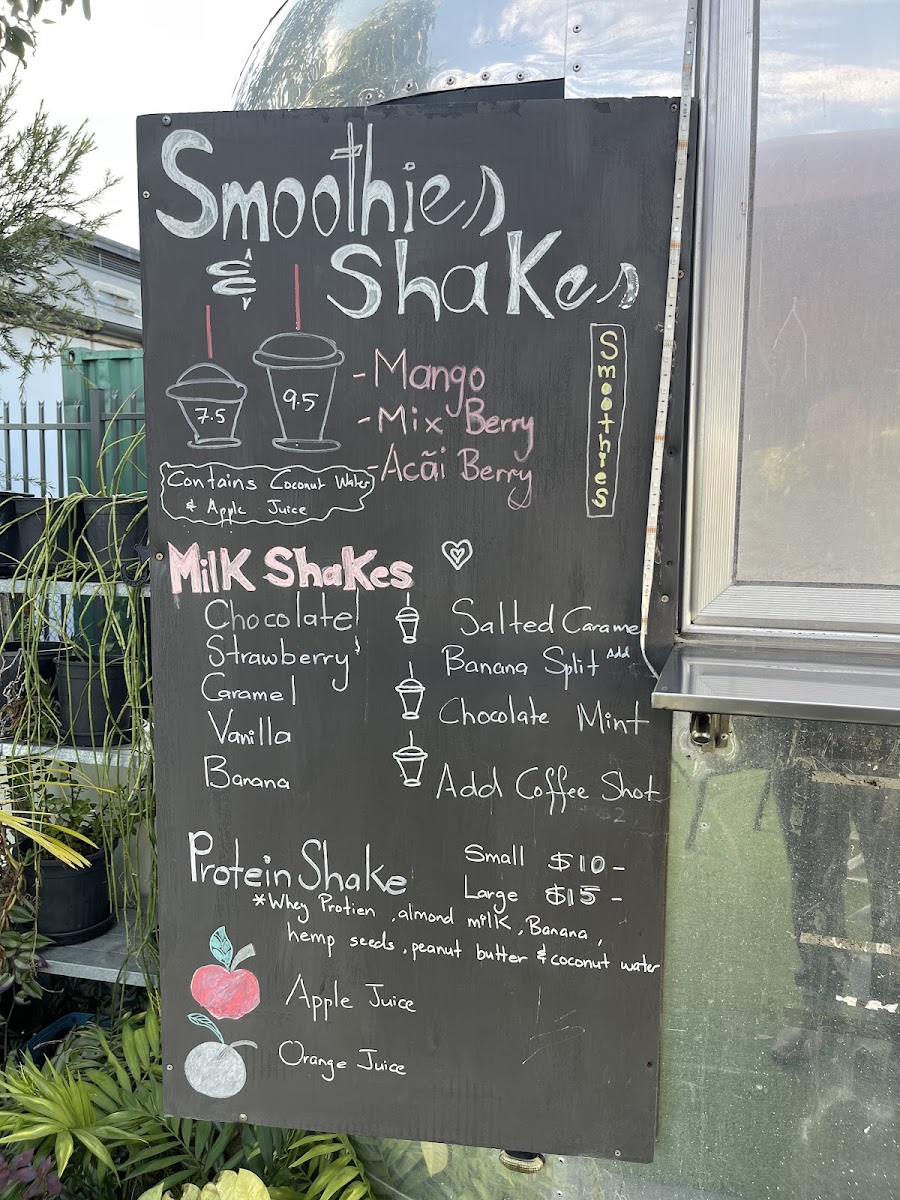 Smoothies
& Shakes
7.5
9.5
- Mango
- Mix Berry
- Acãi Berry
Smoothies
Contains Coconut Water
& Apple Juice
Milk Shakes
Chocolate
Strawberry
Caramel
Vanilla
Banana
Salted Caramel
Banana Split Add
Chocolate Mint
Add Coffee Shot
Protein Shake
Small $10-
Large $15-
*Whey Protien, almond milk, Banana,
hemp seeds, peanut butter & coconut water
Apple Juice
Orange Juice